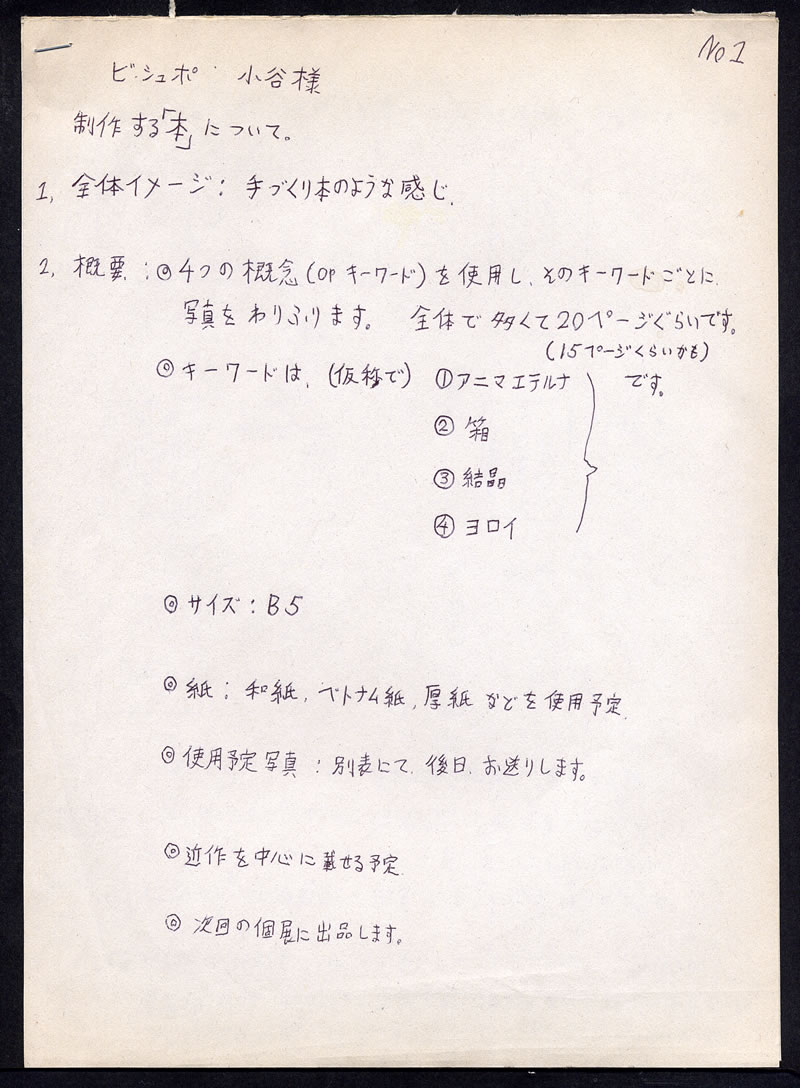 No 1
ビ・シュポ 小谷様
制作する「本」について。
1, 全体イメージ: 手づくり本のような感じ.
2, 概要: ◎4つの概念(op キーワード)を使用し、そのキーワードごとに、
写真をわりふります。 全体で多くて20ページぐらいです。
(15ページくらいかも)
◎キーワードは、(仮称で) ①アニマエテルナ です。
② 箱
③ 結晶
④ ヨロイ
◎サイズ: B5
◎紙: 和紙, ベトナム紙, 厚紙などを使用予定.
◎使用予定写真: 別表にて、後日、お送りします。
◎近作を中心に載せる予定.
◎次回の個展に出品します。